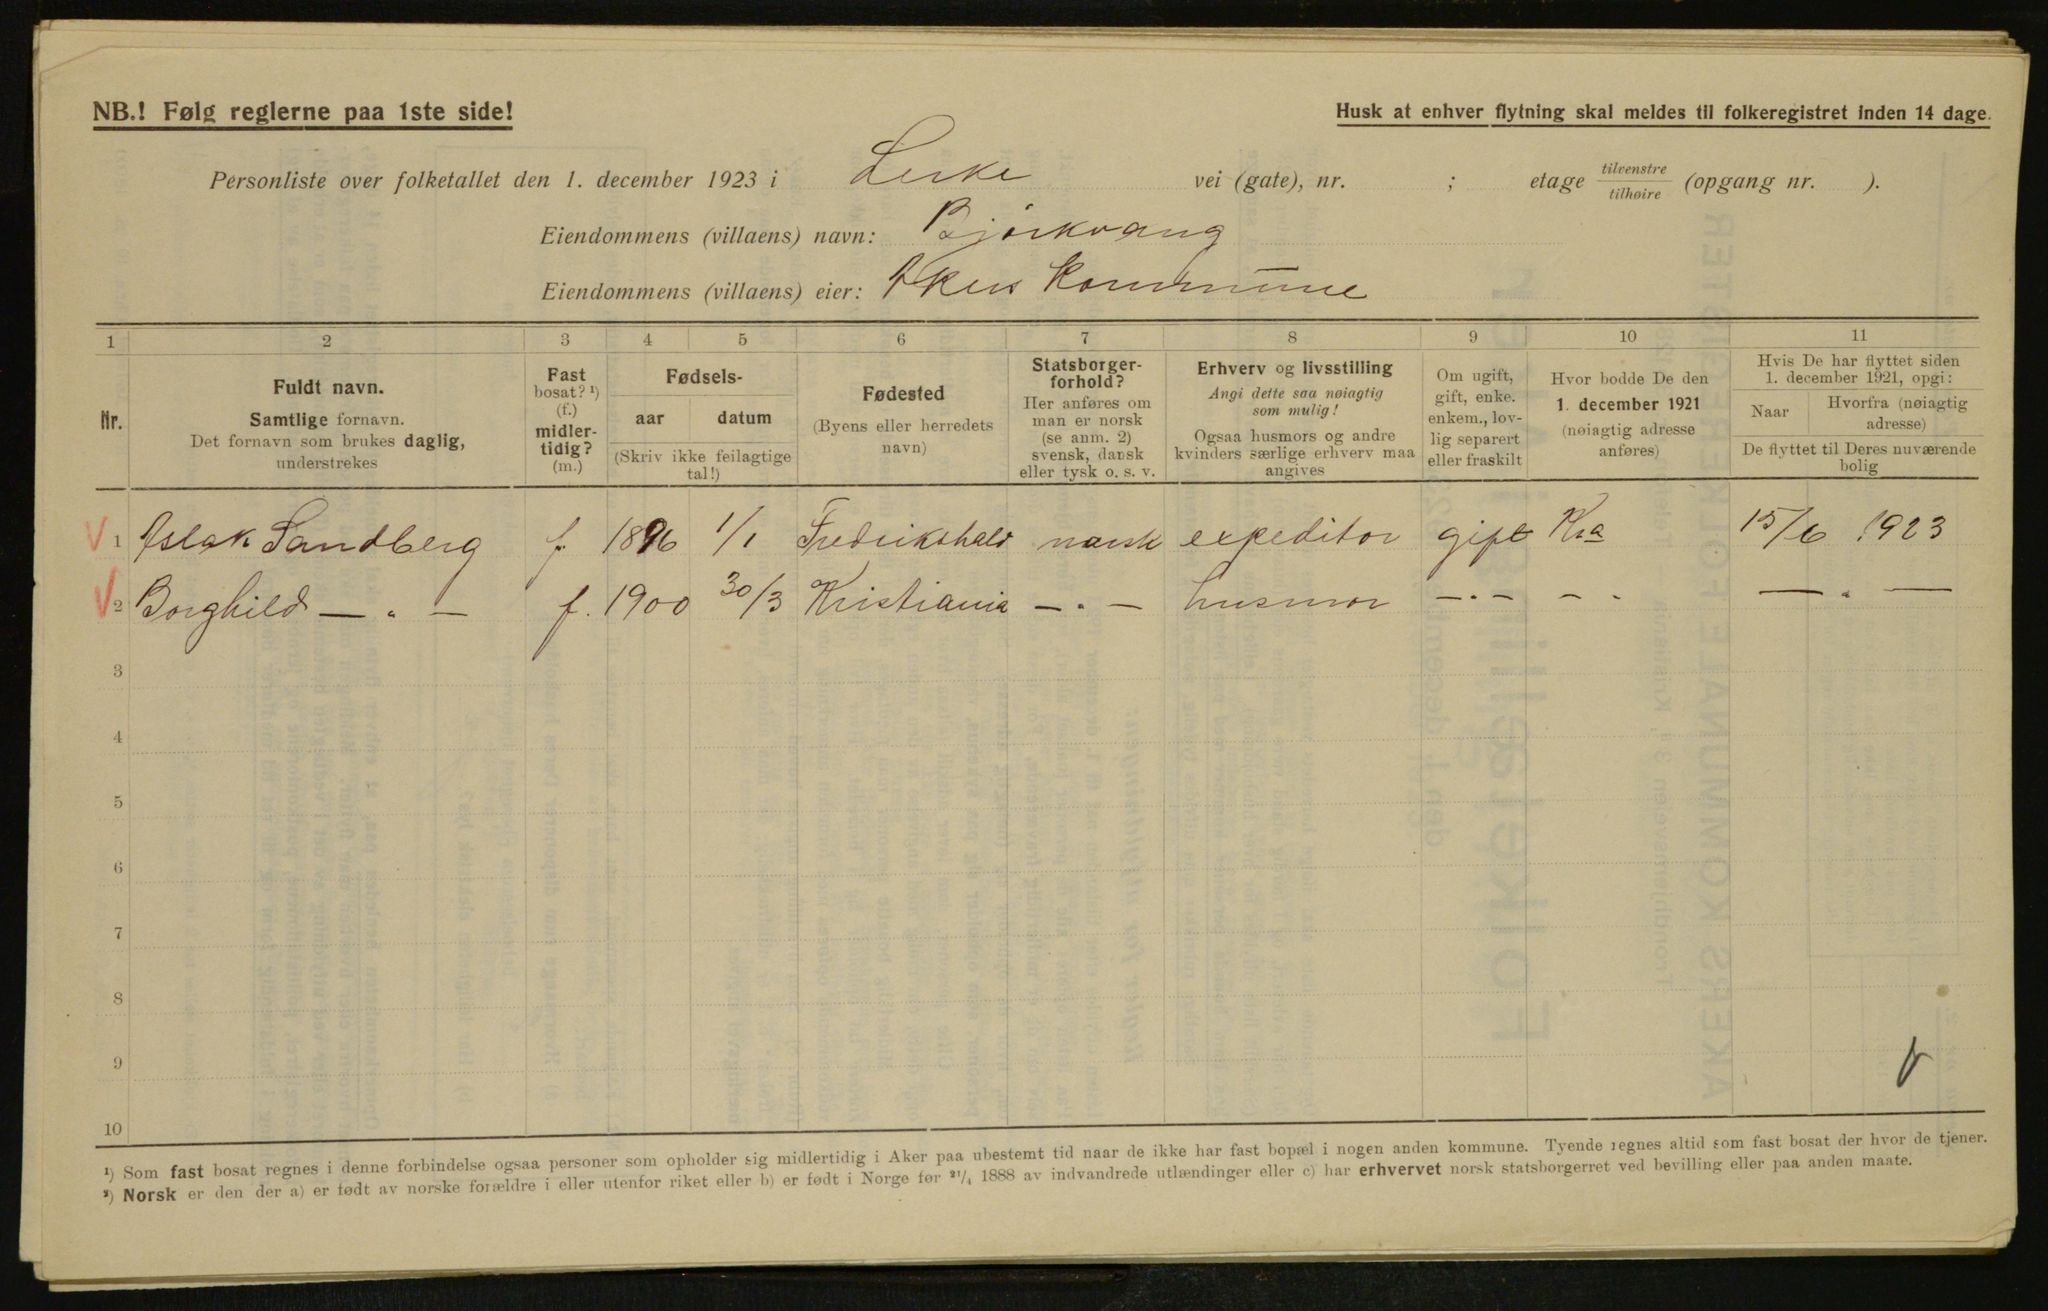 NB.! Følg reglerne paa 1ste side!
Husk at enhver flytning skal meldes til folkeregistret inden 14 dage.
Personliste over folketallet den 1. december 1923 i Leske vei (gate), nr. ; etage tilvenstre tilhøire (opgang nr. ).
Eiendommens (villaens) navn: Bjørkvang
Eiendommens (villaens) eier: Akers Kommune
1 2 3 4 5 6 7 8 9 10 11
Nr.
Fuldt navn.
Samtlige fornavn.
Det fornavn som brukes daglig,
understrekes
Fast
bosat? ¹)
(f.)
midler-
tidig?
(m.)
Fødsels-
aar datum
(Skriv ikke feilagtige
tal!)
Fødested
(Byens eller herredets
navn)
Statsborger-
forhold?
Her anføres om
man er norsk
(se anm. 2)
svensk, dansk
eller tysk o. s. v.
Erhverv og livsstilling
Angi dette saa nøiagtig
som mulig!
Ogsaa husmors og andre
kvinders særlige erhverv maa
angives
Om ugift,
gift, enke.
enkem., lov-
lig separert
eller fraskilt
Hvor bodde De den
1. december 1921
(nøiagtig adresse
anføres)
Hvis De har flyttet siden
1. december 1921, opgi:
Naar
Hvorfra (nøiagtig
adresse)
De flyttet til Deres nuværende
bolig
1 Aslak Sandberg f. 1896 1/1 Fredrikshald norsk expeditor gift Kra 15/6 1923
2 Borghild — " — f. 1900 30/3 Kristiania — " — husmor — " — — " — " —
3
4
5
6
7
8
9
10
¹) Som fast bosat regnes i denne forbindelse ogsaa personer som opholder sig midlertidig i Aker paa ubestemt tid naar de ikke har fast bopæl i nogen anden kommune. Tyende regnes altid som fast bosat der hvor de tjener.
²) Norsk er den der a) er født av norske forældre i eller utenfor riket eller b) er født i Norge før ²¹/₄ 1888 av indvandrede utlændinger eller c) har erhvervet norsk statsborgerret ved bevilling eller paa anden maate.